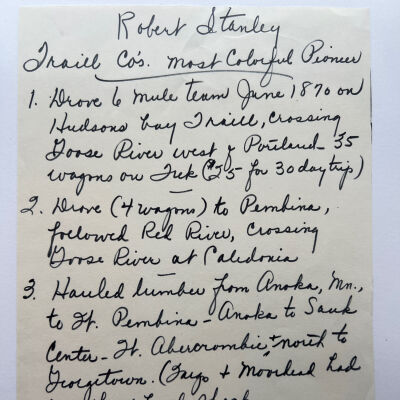 Robert Stanley
Traill Co's. most Colorful Pioneer
1. Drove 6 mule team June 1870 on
Hudsons bay Traill, crossing
Goose River west of Portland - 35
wagons on Trek ($25 for 30 day trip)
2. Drove (4 wagons) to Pembina,
followed Red River, crossing
Goose River at Caledonia
3. Hauled lumber from Anoka, Mn.,
to Ft. Pembina - Anoka to Sauk
Center - Ft. Abercrombie, + north to
Georgetown. (Fargo + Moorhead had